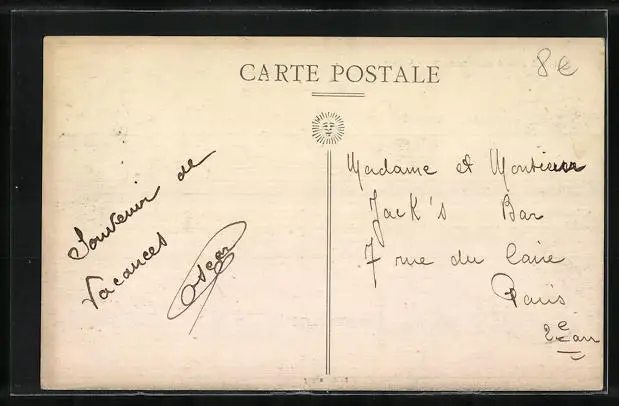 CARTE POSTALE
8€
Souvenir de
Vacances
Oscar
Madame et Monsieur
Jack's Bar
7 rue du Caire
Paris
2e arr